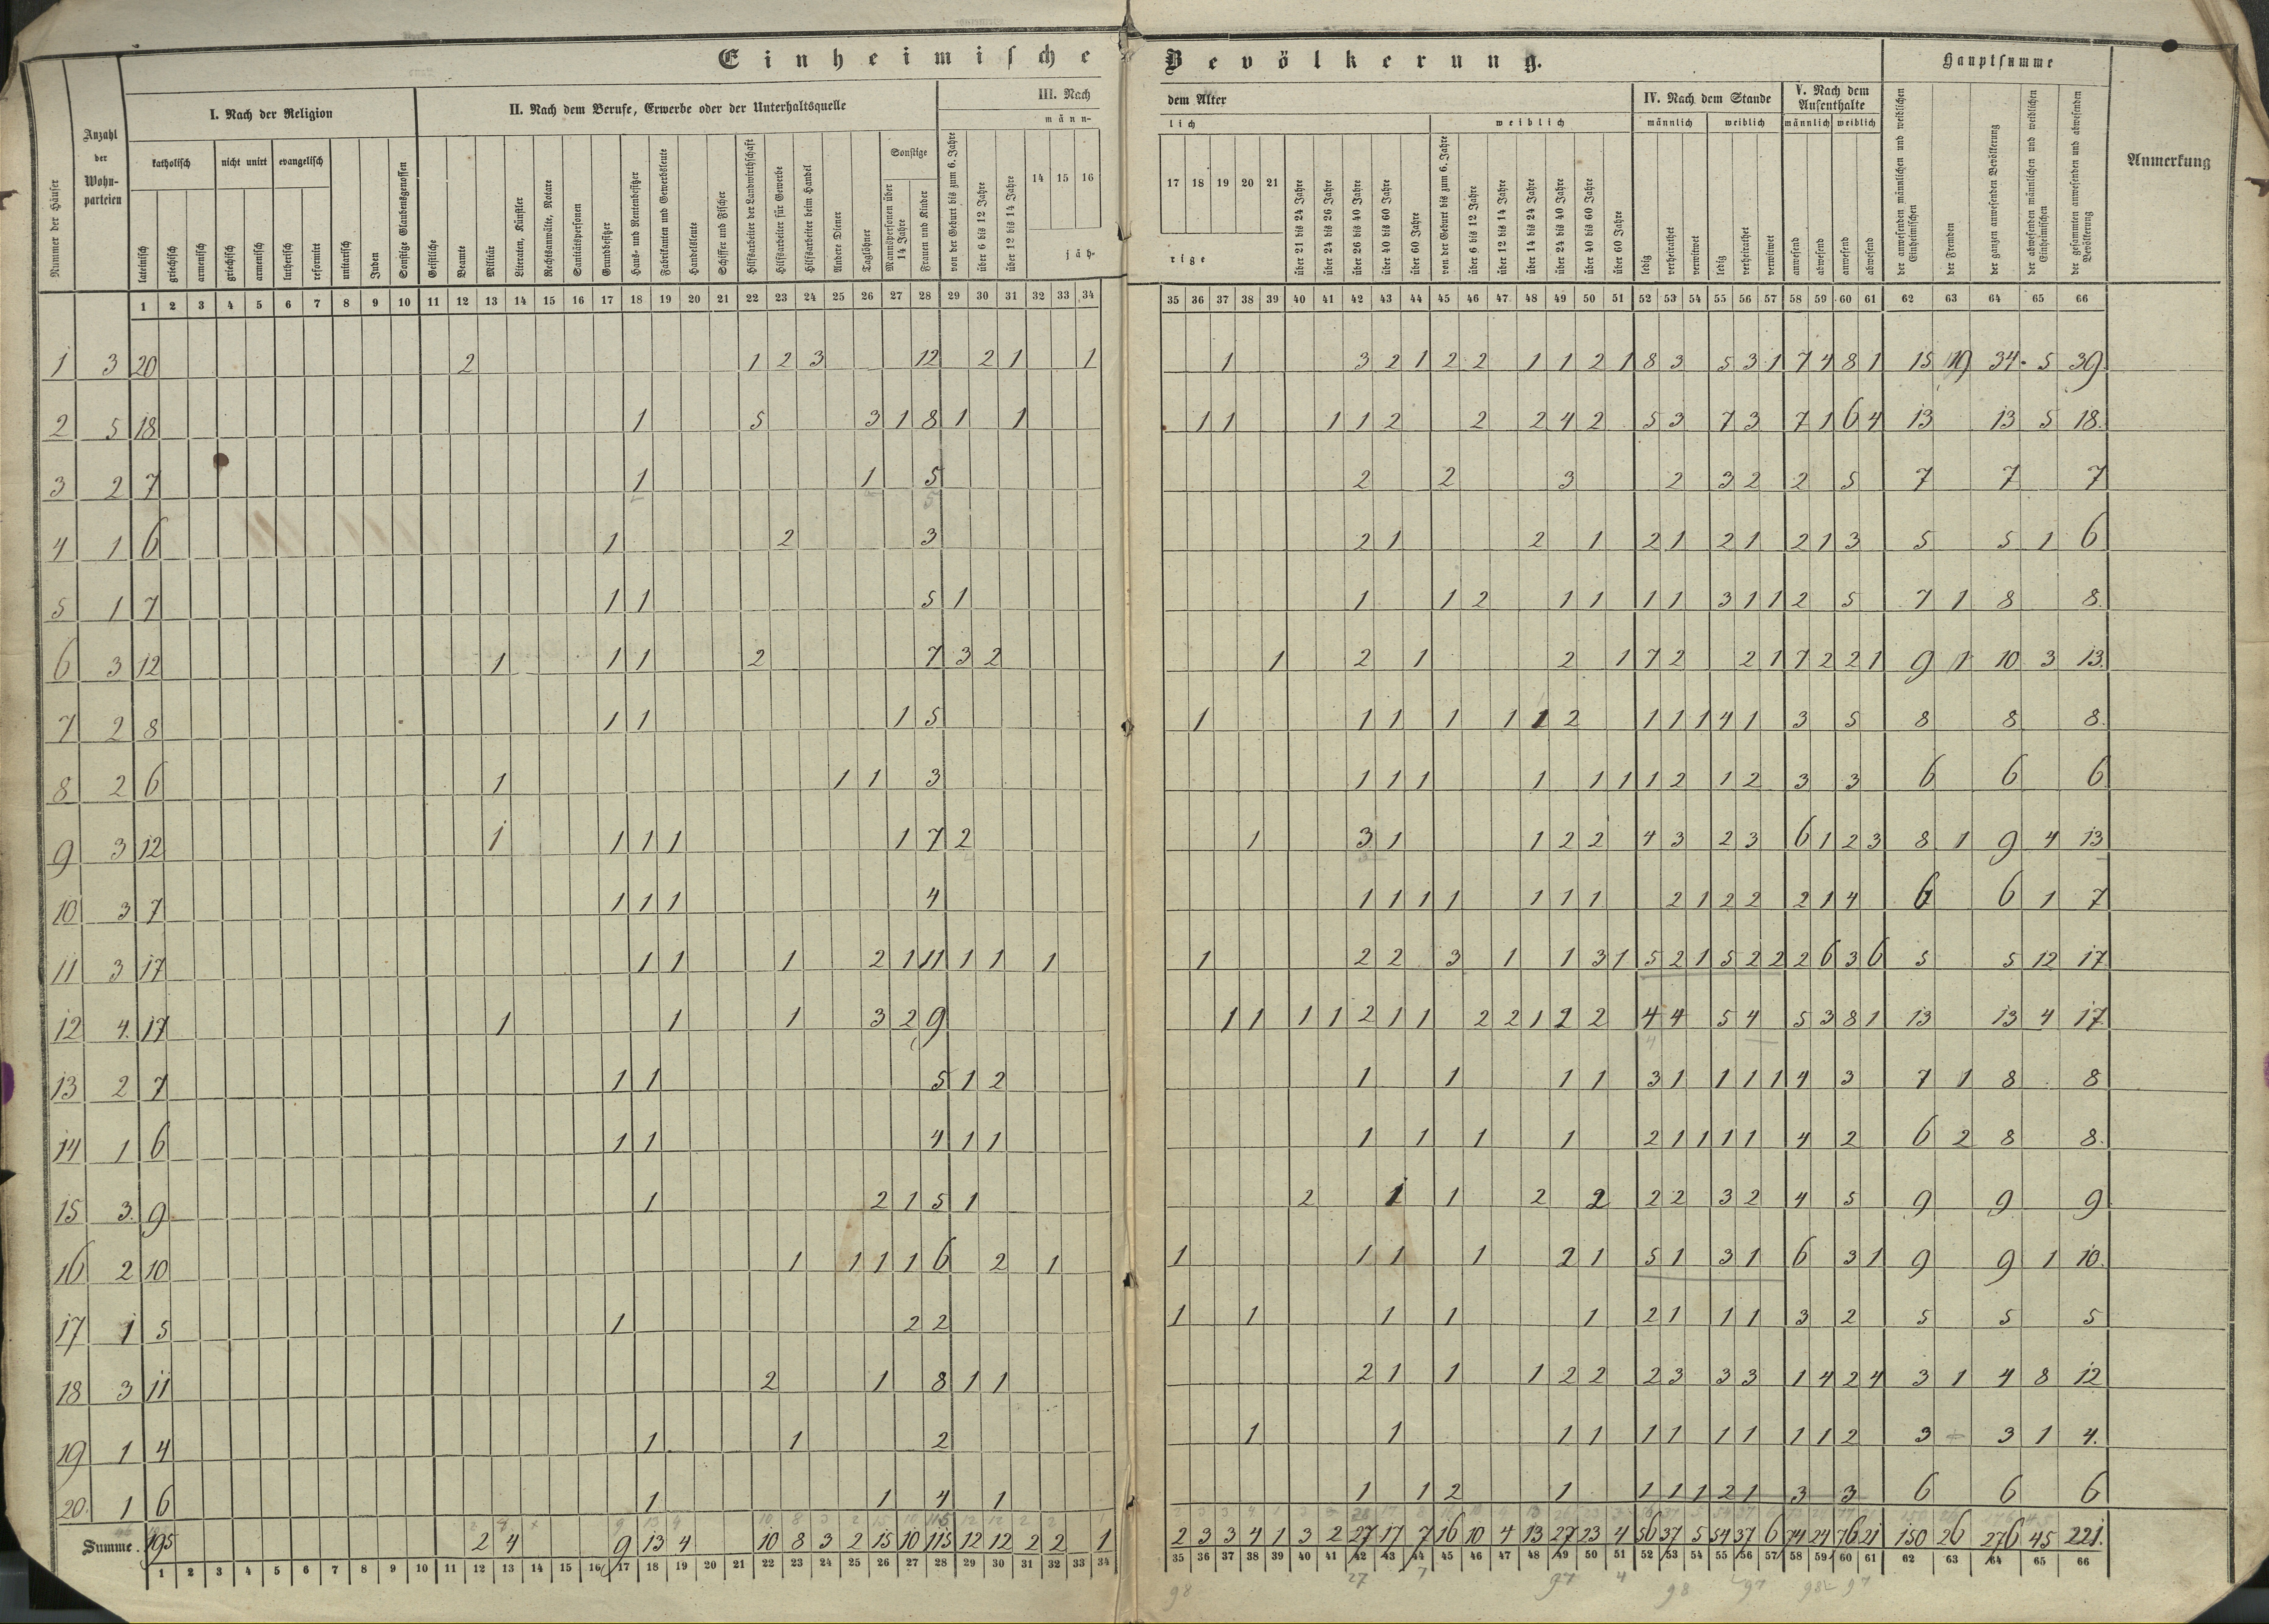 Einheimische Bevölkerung.
Hauptsumme
Nummer der Häuser
Anzahl der Wohnparteien
I. Nach der Religion
II. Nach dem Berufe, Erwerbe oder der Unterhaltsquelle
III. Nach dem Alter
IV. Nach dem Stande
V. Nach dem Aufenthalte
Anmerkung
katholisch
nicht unirt
evangelisch
Sonstige
männlich
weiblich
männlich weiblich
männlich weiblich
lateinisch
griechisch
armenisch
griechisch
armenisch
lutherisch
reformirt
unitarisch
Juden
Sonstige Glaubensgenossen
Geistliche
Beamte
Militär
Literaten, Künstler
Rechtsanwälte, Notare
Sanitätspersonen
Grundbesitzer
Haus- und Rentenbesitzer
Fabrikanten und Gewerbsleute
Handelsleute
Schiffer und Fischer
Hilfsarbeiter der Landwirthschaft
Hilfsarbeiter für Gewerbe
Hilfsarbeiter beim Handel
Andre Diener
Taglöhner
Mannspersonen über 14 Jahre
Frauen und Kinder
von der Geburt bis zum 6. Jahre
über 6 bis 12 Jahre
über 12 bis 14 Jahre
14 15 16
17 18 19 20 21
jährige
über 21 bis 24 Jahre
über 24 bis 26 Jahre
über 26 bis 40 Jahre
über 40 bis 60 Jahre
über 60 Jahre
von der Geburt bis zum 6. Jahre
über 6 bis 12 Jahre
über 12 bis 14 Jahre
über 14 bis 24 Jahre
über 24 bis 40 Jahre
über 40 bis 60 Jahre
über 60 Jahre
ledig
verheirathet
verwitwet
ledig
verheirathet
verwitwet
anwesend
abwesend
anwesend
abwesend
der anwesenden männlichen und weiblichen Einheimischen
der Fremden
der ganzen anwesenden Bevölkerung
der abwesenden männlichen und weiblichen Einheimischen
der gesammten anwesenden und abwesenden Bevölkerung
1 2 3 4 5 6 7 8 9 10 11 12 13 14 15 16 17 18 19 20 21 22 23 24 25 26 27 28 29 30 31 32 33 34 35 36 37 38 39 40 41 42 43 44 45 46 47 48 49 50 51 52 53 54 55 56 57 58 59 60 61 62 63 64 65 66
1 3 20 2 1 2 3 12 2 1 1 1 3 2 1 2 2 1 1 2 1 8 3 5 3 1 7 4 8 1 15 19 34 5 39
2 5 18 1 5 3 1 8 1 1 1 1 1 1 2 2 2 4 2 5 3 7 3 7 1 6 4 13 13 5 18.
3 2 7 1 1 5 2 2 3 2 3 2 2 5 7 7 7
4 1 6 1 2 3 2 1 2 1 2 1 2 1 2 1 3 5 5 1 6
5 1 7 1 1 5 1 1 1 2 1 1 1 1 3 1 1 2 5 7 1 8 8.
6 3 12 1 1 1 2 7 3 2 1 2 1 2 1 7 2 2 1 7 2 2 1 9 1 10 3 13.
7 2 8 1 1 1 5 1 1 1 1 1 1 2 1 1 1 4 1 3 5 8 8 8.
8 2 6 1 1 1 3 1 1 1 1 1 1 1 2 1 2 3 3 6 6 6
9 3 12 1 1 1 1 1 7 2 1 3 1 1 2 2 4 3 2 3 6 1 2 3 8 1 9 4 13
10 3 7 1 1 1 4 1 1 1 1 1 1 1 2 1 2 2 2 1 4 6 6 1 7
11 3 17 1 1 1 2 1 11 1 1 1 1 2 2 3 1 1 3 1 5 2 1 5 2 2 2 6 3 6 5 5 12 17
12 4. 17 1 1 1 3 2 9 1 1 1 1 2 1 1 2 2 1 2 2 4 4 5 4 5 3 8 1 13 13 4 17
13 2 7 1 1 5 1 2 1 1 1 1 3 1 1 1 1 4 3 7 1 8 8
14 1 6 1 1 4 1 1 1 1 1 1 2 1 1 1 1 4 2 6 2 8 8.
15 3. 9 1 2 1 5 1 2 1 1 2 2 2 2 3 2 4 5 9 9 9
16 2 10 1 1 1 1 6 2 1 1 1 1 1 2 1 5 1 3 1 6 3 1 9 9 1 10.
17 1 5 1 2 2 1 1 1 1 1 2 1 1 1 3 2 5 5 5
18 3 11 2 1 8 1 1 2 1 1 1 2 2 2 3 3 3 1 4 2 4 3 1 4 8 12
19 1 4 1 1 2 1 1 1 1 1 1 1 1 1 1 2 3 3 1 4.
20. 1 6 1 1 4 1 1 1 2 1 1 1 1 2 1 3 3 6 6 6
Summe. 195 2 4 9 13 4 10 8 3 2 15 10 115 12 12 2 2 1 2 3 3 4 1 3 2 27 17 7 16 10 4 13 27 23 4 56 37 5 54 37 6 74 24 76 21 150 26 276 45 221.
1 2 3 4 5 6 7 8 9 10 11 12 13 14 15 16 17 18 19 20 21 22 23 24 25 26 27 28 29 30 31 32 33 34 35 36 37 38 39 40 41 42 43 44 45 46 47 48 49 50 51 52 53 54 55 56 57 58 59 60 61 62 63 64 65 66
98 27 7 97 4 98 97 98 97